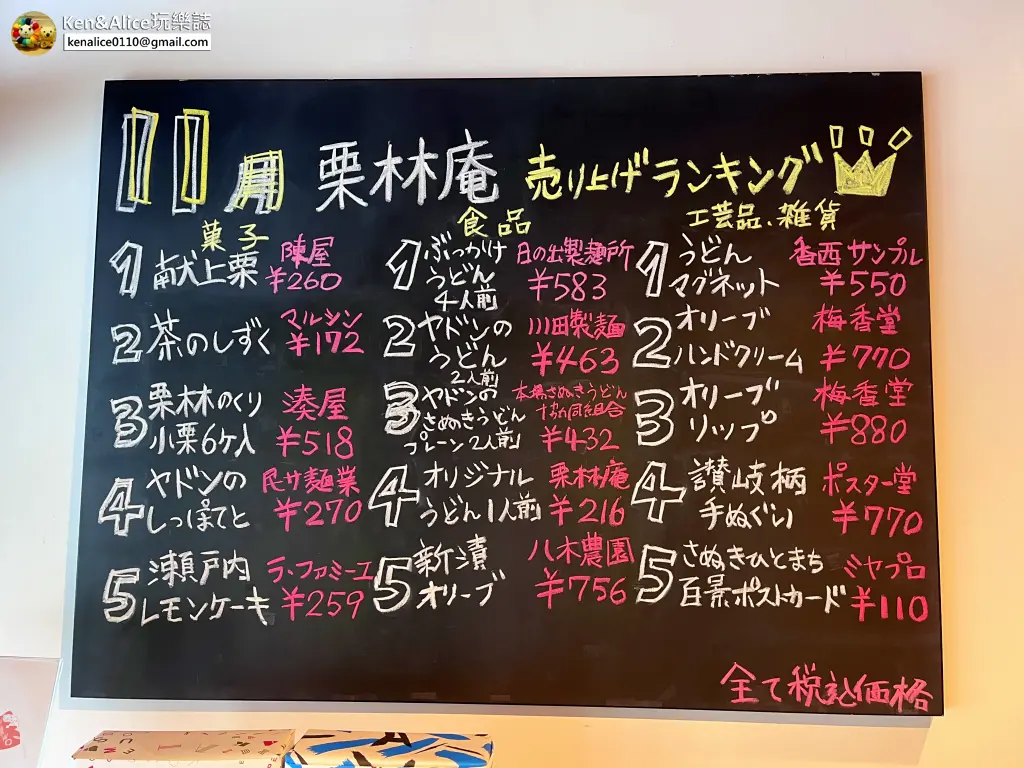 Ken&Alice玩樂誌
kenalice0110@gmail.com
11月 栗林庵 売り上げランキング
菓子
1 献上栗 陣屋 ¥260
2 茶のしずく マルシン ¥172
3 栗林のくり 湊屋
小栗6ケ入 ¥518
4 ヤドンの 尽サ麺業
しっぽてと ¥270
5 瀬戸内 ラ・ファミーエ
レモンケーキ ¥259
食品
1 ぶっかけ 日の出製麺所
うどん ¥583
4人前
2 ヤドンの 川田製麺
うどん ¥463
2人前
3 ヤドンの 本場さぬきうどん
さぬきうどん 協同組合
プレーン2人前 ¥432
4 オリジナル 栗林庵
うどん1人前 ¥216
5 新漬 八木農園
オリーブ ¥756
工芸品、雑貨
1 うどん 香西サンプル
マグネット ¥550
2 オリーブ 梅香堂
ハンドクリーム ¥770
3 オリーブ 梅香堂
リップ ¥880
4 讃岐柄 ポスター堂
手ぬぐい ¥770
5 さぬきひとまち ミヤプロ
百景ポストカード ¥110
全て税込価格